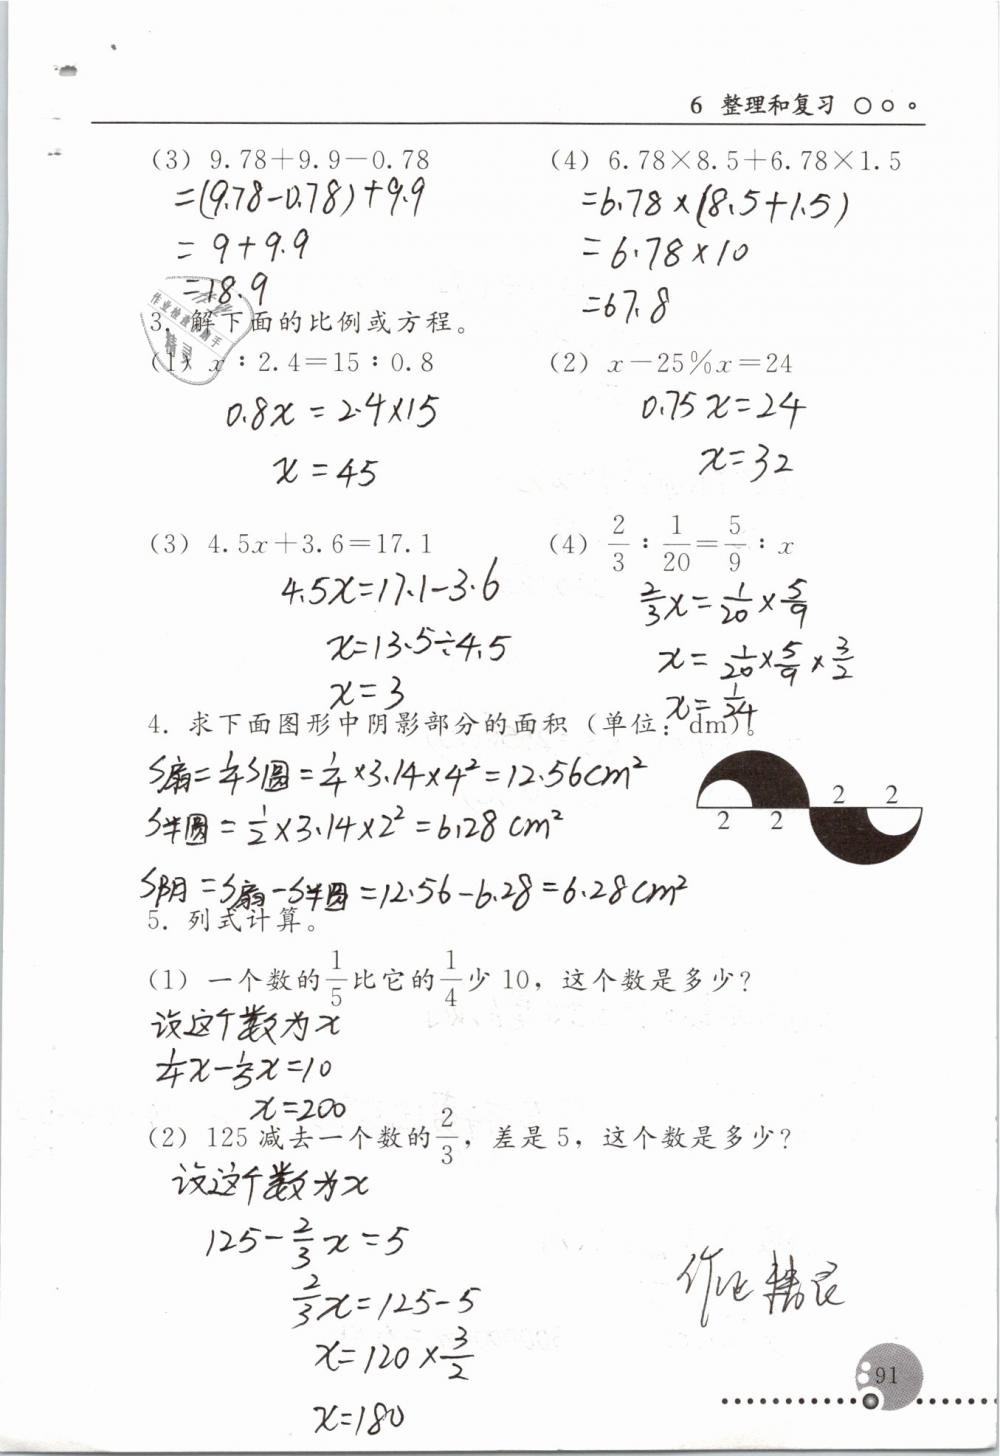 6 整理和复习
(3) 9.78+9.9-0.78
=(9.78-0.78)+9.9
= 9+9.9
=18.9
(4) 6.78×8.5+6.78×1.5
=6.78×(8.5+1.5)
=6.78×10
=67.8
3. 解下面的比例或方程。
(1) x:2.4=15:0.8
0.8x=2.4×15
x=45
(2) x-25%x=24
0.75x=24
x=32
(3) 4.5x+3.6=17.1
4.5x=17.1-3.6
x=13.5÷4.5
x=3
(4) 2/3:1/20=5/9:x
2/3x=1/20×5/9
x=1/20×5/9×3/2
x=1/24
4. 求下面图形中阴影部分的面积(单位:dm)。
S扇=1/4S圆=1/4×3.14×4²=12.56cm²
S半圆=1/2×3.14×2²=6.28cm²
S阴=S扇-S半圆=12.56-6.28=6.28cm²
2 2 2 2
5. 列式计算。
(1) 一个数的1/5比它的1/4少10,这个数是多少?
设这个数为x
1/4x-1/5x=10
x=200
(2) 125减去一个数的2/3,差是5,这个数是多少?
设这个数为x
125-2/3x=5
2/3x=125-5
x=120×3/2
x=180
作业精灵
91